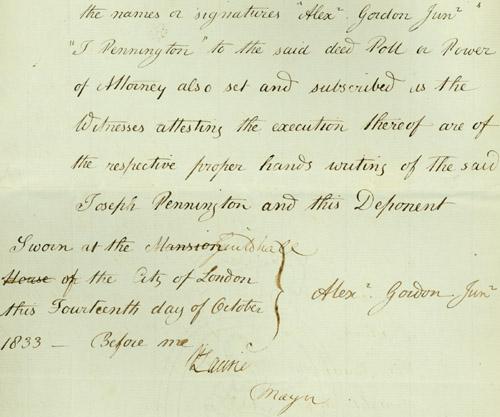 the names or signatures "Alexr. Gordon Junr"
"J Pennington" to the said deed Poll or Power
of Attorney also set and subscribed as the
Witnesses attesting the execution thereof are of
the respective proper hands writing of the said
Joseph Pennington and this Deponent
Sworn at the Mansion Guildhall
House of the City of London
this Fourteenth day of October
1833 — Before me
Alexr. Gordon Junr
Laurie
Mayor